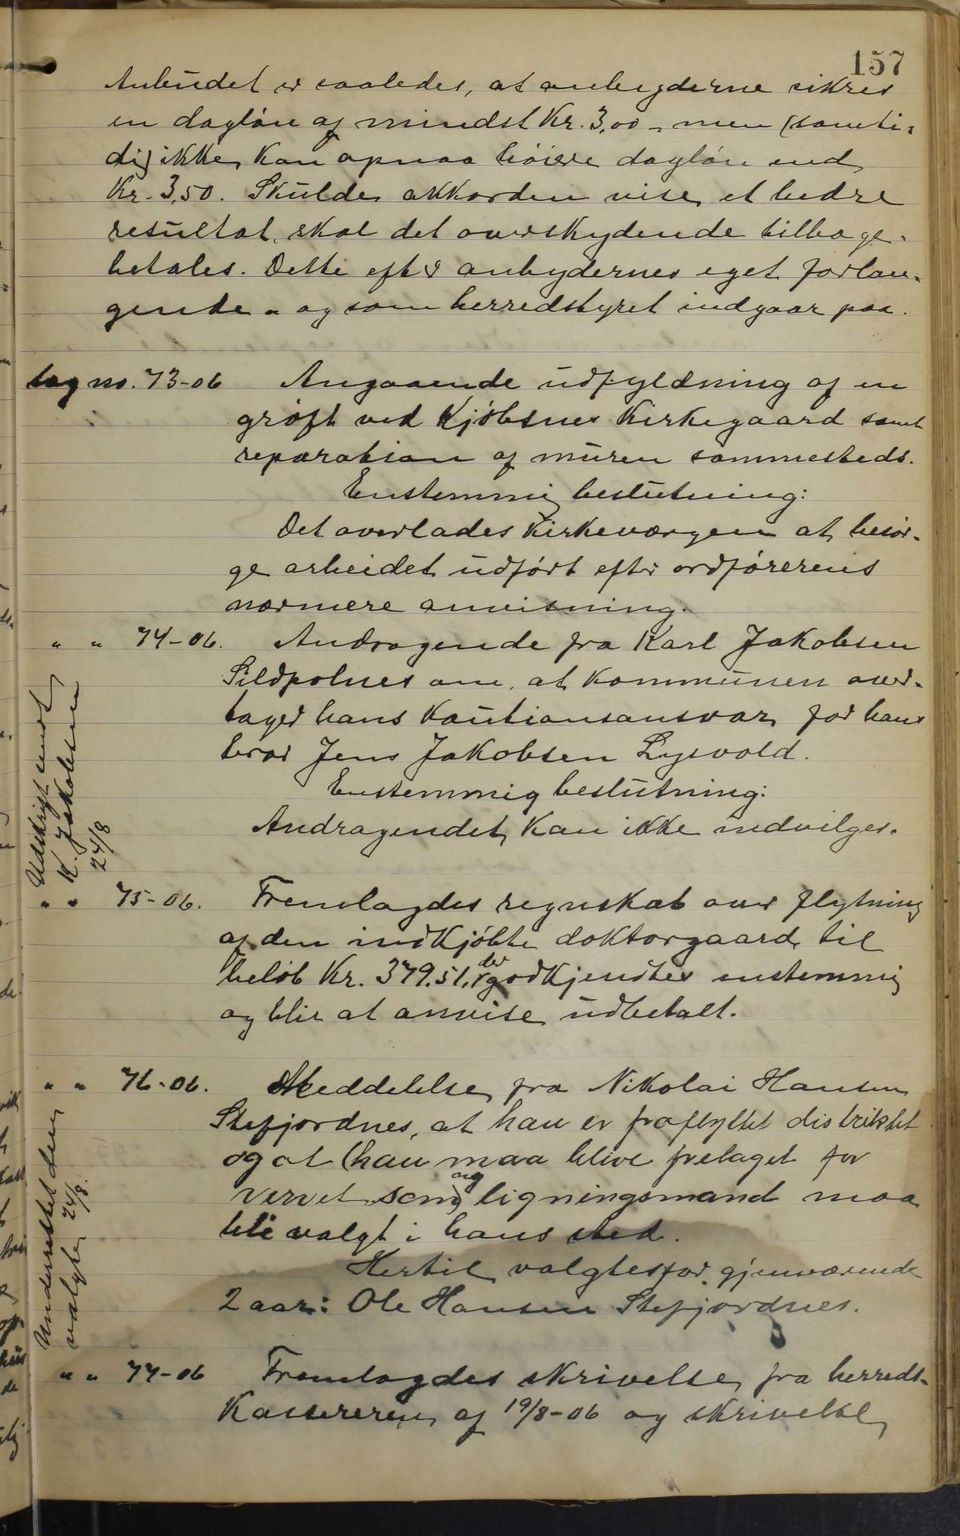 157
Anbudet er saaledes, at anbyderne sikres
en dagløn af mindst Kr. 3,00 - men (samti-
dig) ikke kan opnaa høiere dagløn end
Kr. 3,50. Skulde akkorden vise et bedre
resultat, skal det overskydende tilbage-
betales. Dette efter anbydernes eget forlan-
gende - og som herredstyret indgaar paa.
Sag no. 73-06 Angaaende udfyldning af en
grøft ved Kjøbsnes Kirkegaard samt
reparation af muren sammesteds.
Enstemmig beslutning:
Det overlades Kirkeværgen at besør-
ge arbeidet udført efter ordførerens
nærmere anvisning.
" " 74-06. Andragende fra Karl Jakobsen
Sildpolnes om, at Kommunen over-
tager hans Kautionsansvar for hans
bror Jens Jakobsen Lysvold.
Enstemmig beslutning:
Andragendet kan ikke indvilges.
Udskrift sendt
K. Jakobsen
24/8
" " 75-06. Fremlagdes regnskab over flytning
af den indkjøbte doktorgaard til
beløb Kr. 379.51, der godkjendtes enstemmig
og blir at anvise udbetalt.
" " 76-06. Meddelelse fra Nikolai Hansen
Stefjordnes, at han er fraflyttet distriktet
og at (han maa blive fretaget for
vervet som ligningsmand og maa
bli valgt i hans sted.
Hertil valgtes for gjenværende
2 aar: Ole Hansen Stefjordnes.
Underrettet den
valgte 24/8.
" " 77-06 Fremlagdes skrivelse fra herreds-
Kassereren af 19/8-06 og skrivelse